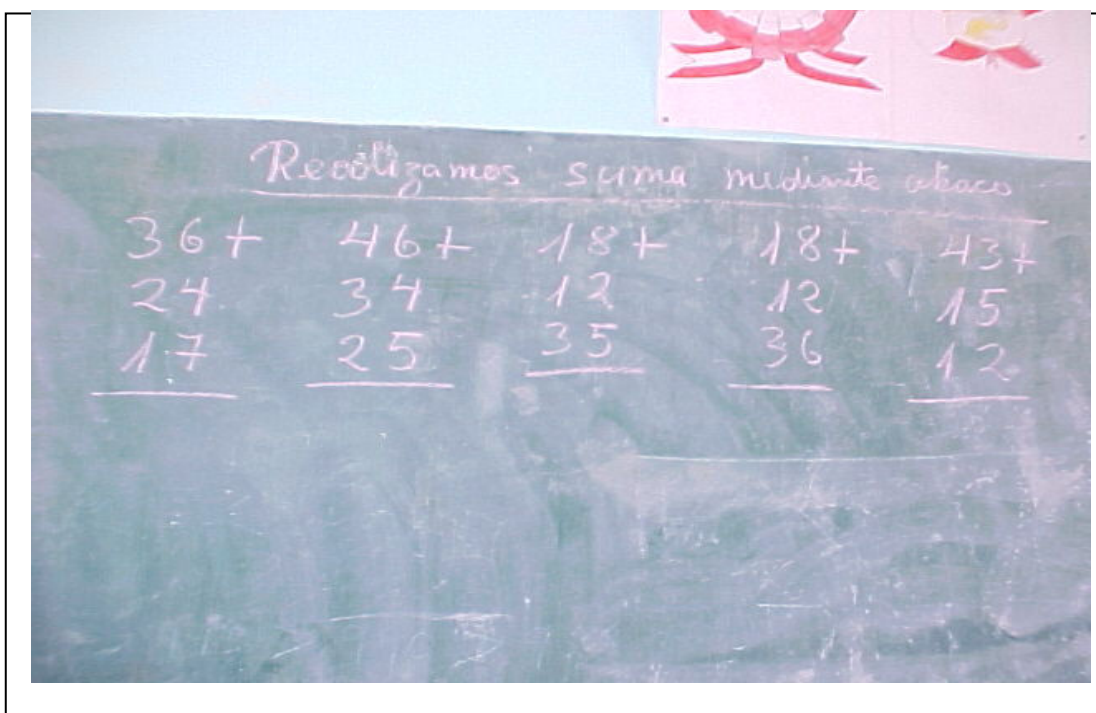 Realizamos suma mediante abaco
36+ 46+ 18+ 18+ 43+
24 34 12 12 15
17 25 35 36 12